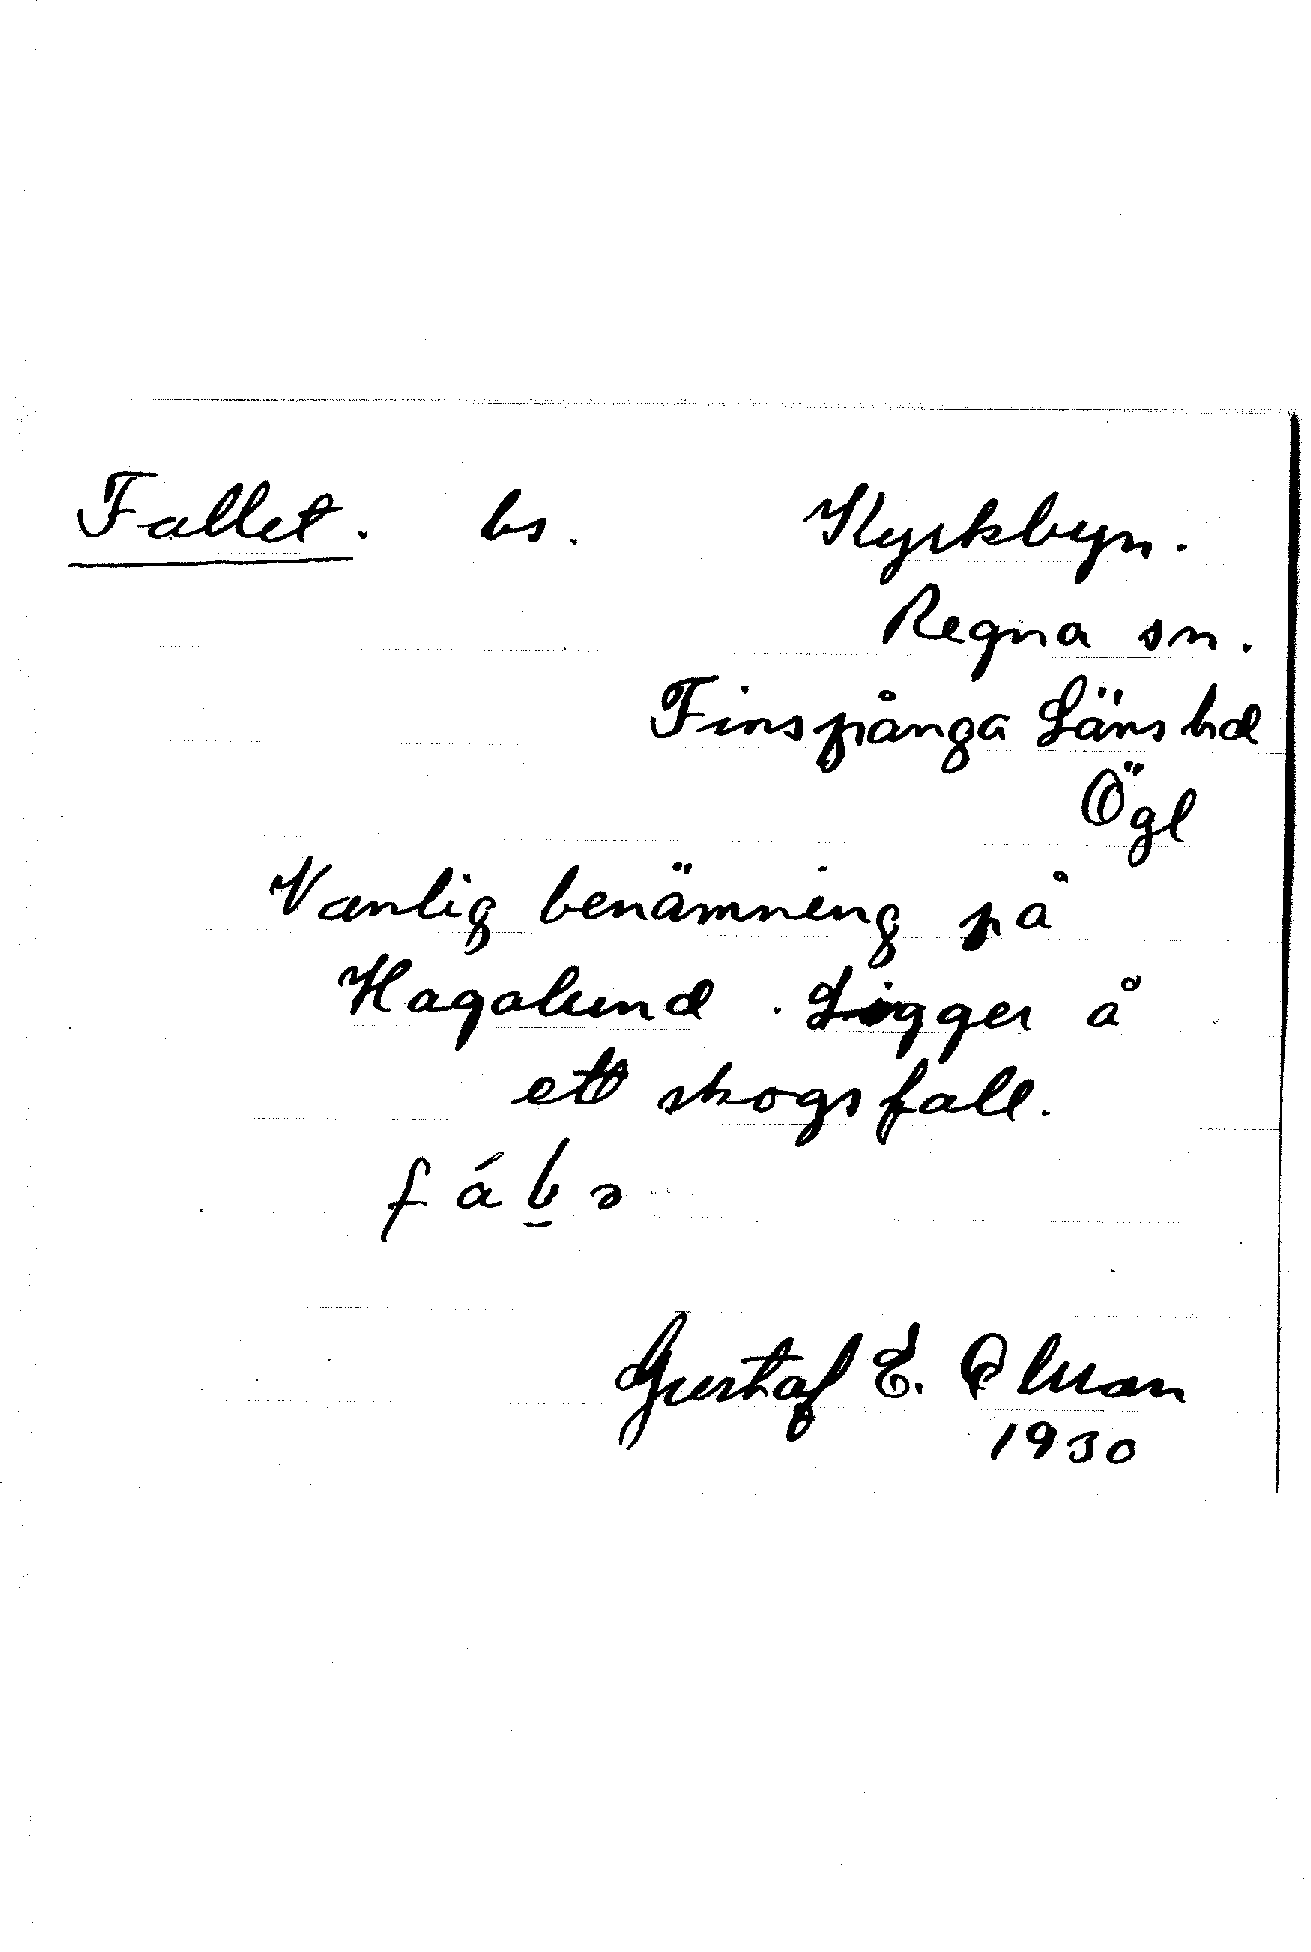 Fallet. bs. Kyrkbyn.
Regna sn.
Finspånga Läns hd
Ögl
Vanlig benämning på
Hagalund. Ligger å
ett skogsfall.
Gustaf E.
1930